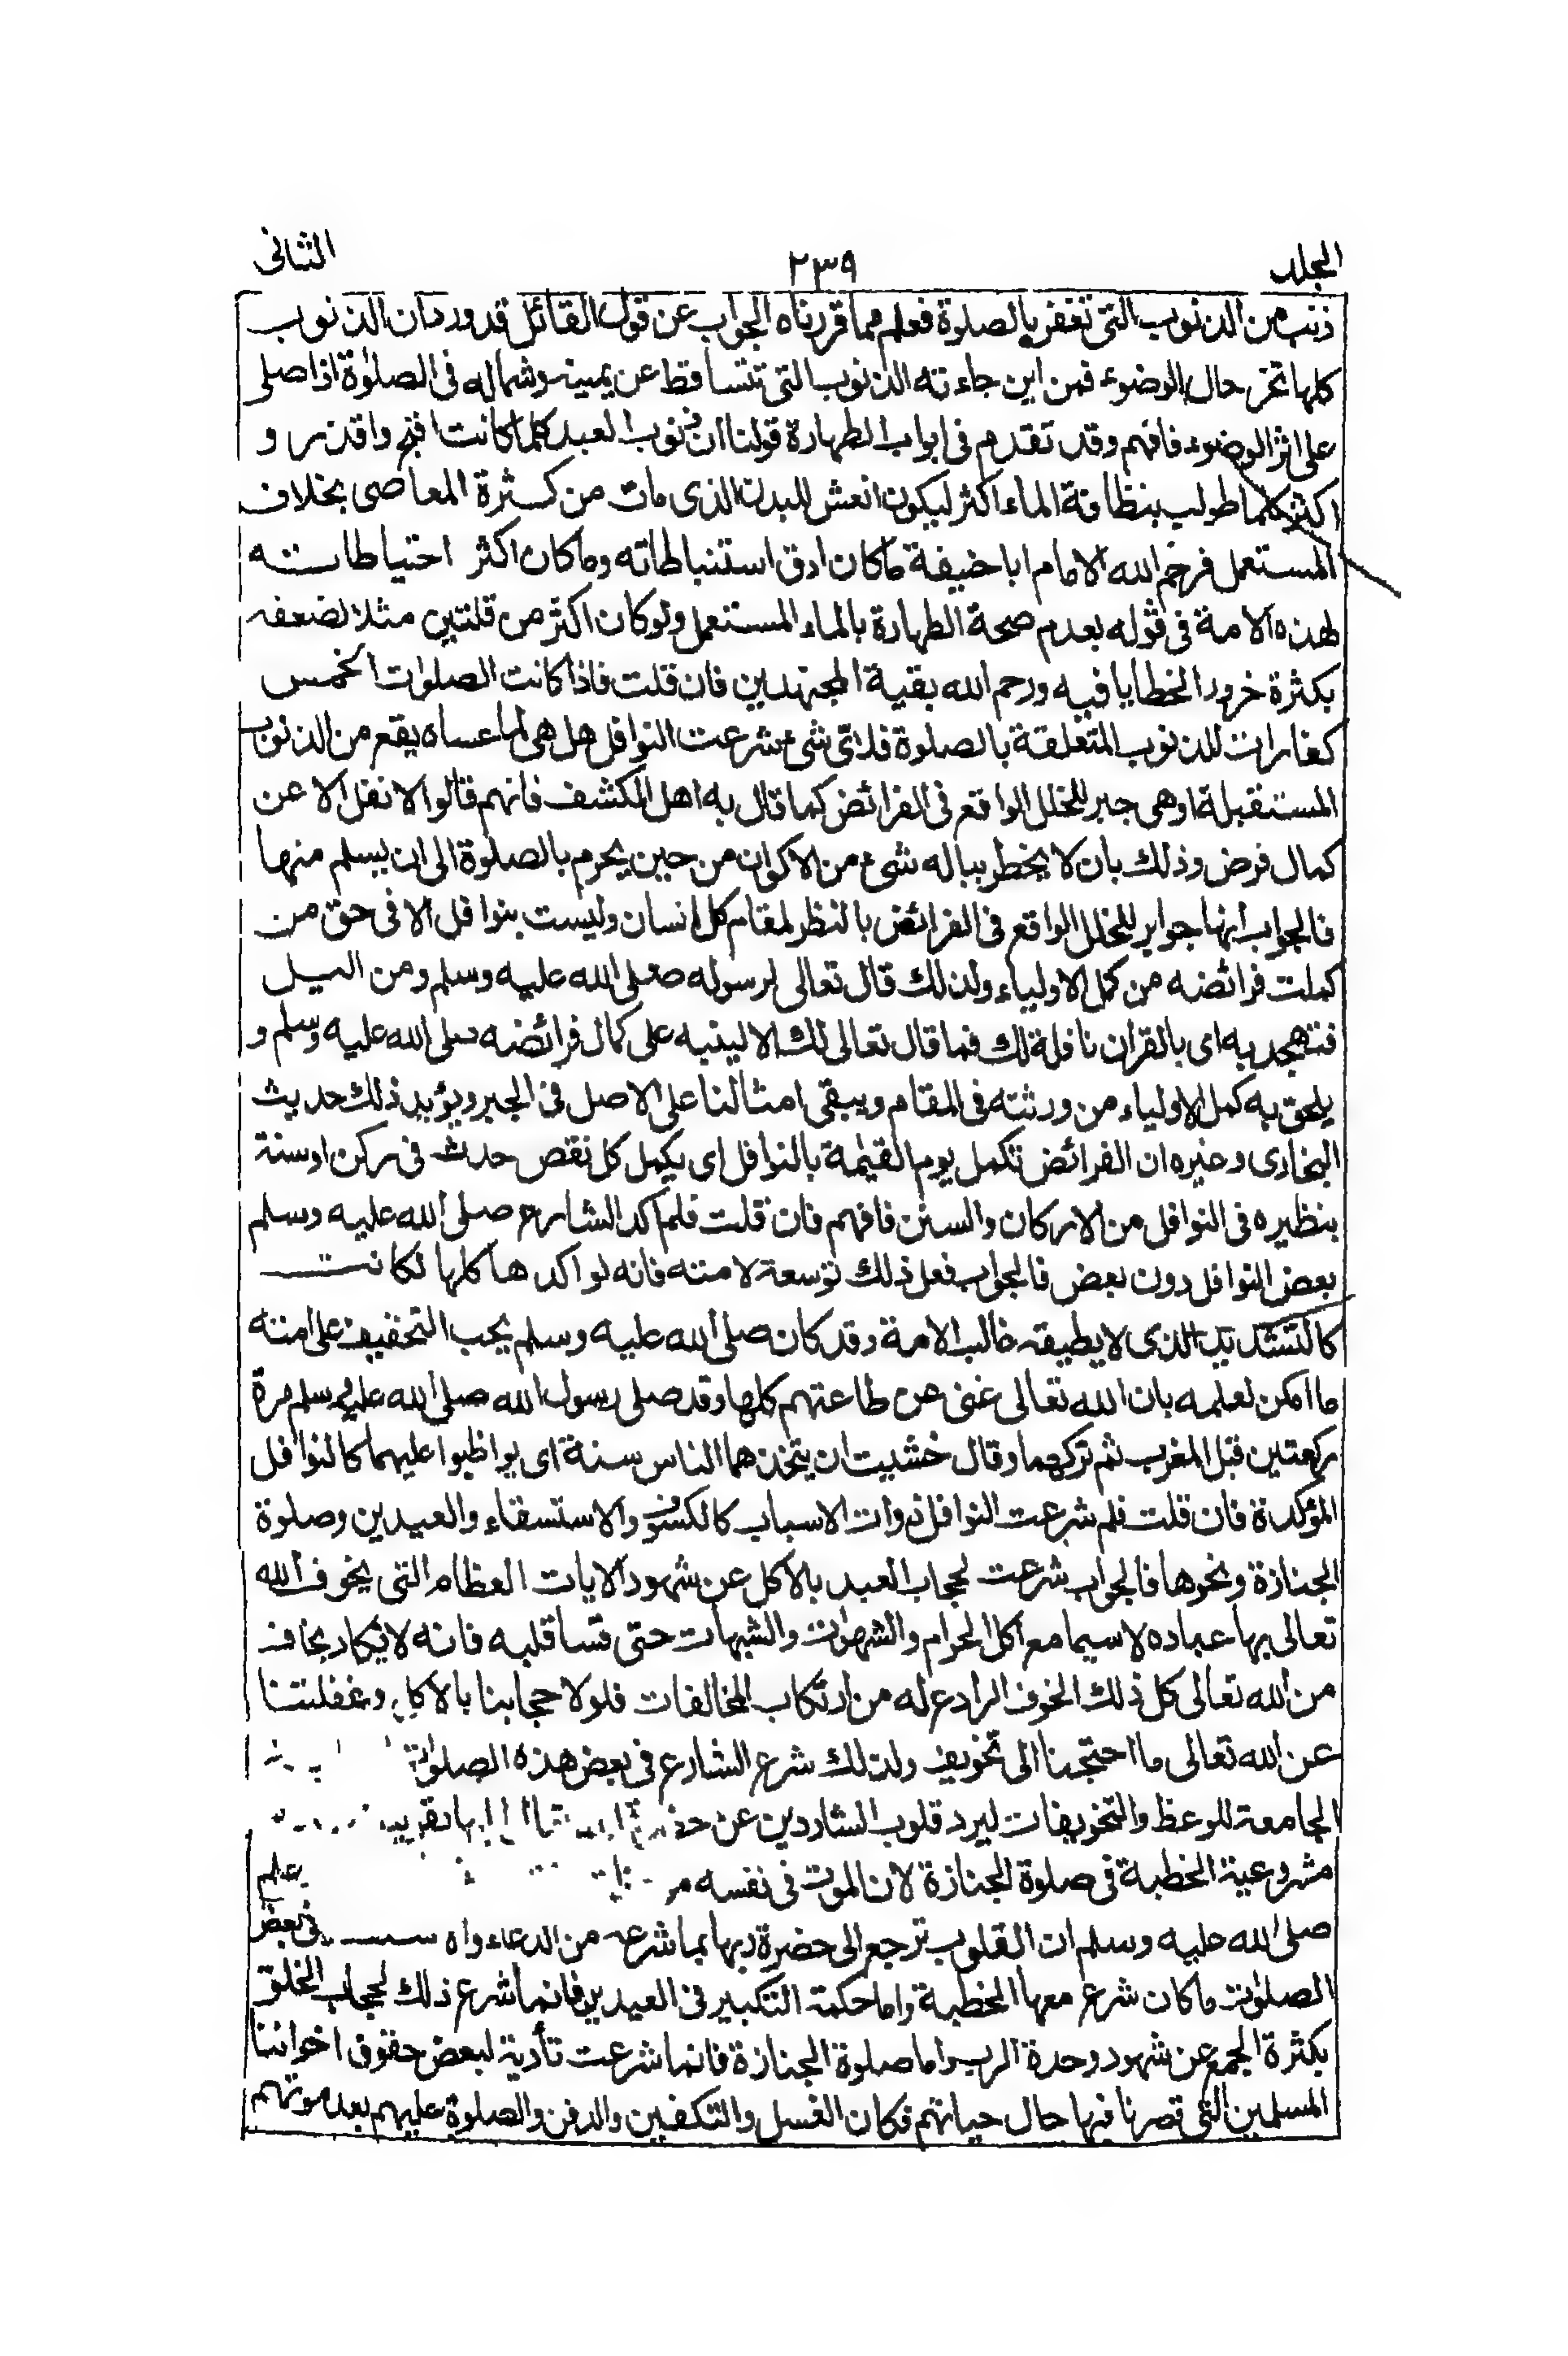 المجلد ٢٣٩ الثانى
ذنب من الذنوب التى تغفر بالصلوة فعلم مما قررناه الجواب عن قول القائل قد ورد ان الذنوب
كلها تخر حال الوضوء فمن اين جاءته الذنوب التى تتساقط عن يمينه وشماله فى الصلوٰة اذا صلى
على اثر الوضوء فافهم وقد تقدم فى ابواب الطهارة قولنا ان ذنوب العبد كلما كانت اقبح واقذر و
اكثر كلما طولب بنظافة الماء اكثر ليكون انعش للبدن الذى مات من كثرة المعاصى بخلاف
المستعمل فرحم الله الامام ابا حنيفة ما كان ادق استنباطاته وما كان اكثر احتياطاته
لهذه الامة فى قوله بعدم صحة الطهارة بالماء المستعمل ولو كان اكثر من قلتين مثلا لضعفه
بكثرة خرور الخطايا فيه ورحم الله بقية المجتهدين فان قلت فاذا كانت الصلوٰت الخمس
كفارات للذنوب المتعلقة بالصلوة فلاىّ شئ شرعت النوافل هل هى لما عساه يقع من الذنوب
المستقبلة او هى جبر للخلل الواقع فى الفرائض كما قال به اهل الكشف فانهم قالوا لا نفل الا عن
كمال فرض وذلك بان لا يخطر بباله شئ من الاكوان من حين يحرم بالصلوة الى ان يسلم منها
فالجواب انها جوابر للخلل الواقع فى الفرائض بالنظر لمقام كل انسان وليست بنوافل الا فى حق من
كملت فرائضه من كمل الاولياء ولذلك قال تعالى لرسوله صلى الله عليه وسلم ومن اليل
فتهجد به اى بالقران نافلة لك فما قال تعالى لك الا لينبه على كمال فرائضه صلى الله عليه وسلم و
يلحق به كمل الاولياء من ورثته فى المقام ويبقى امثالنا على الاصل فى الجبر ويؤيد ذلك حديث
البخارى وغيره ان الفرائض تكمل يوم القيٰمة بالنوافل اى يكمل كل نقص حدث فى ركن او سنة
بنظيره فى النوافل من الاركان والسنن فافهم فان قلت فلم اكد الشارع صلى الله عليه وسلم
بعض النوافل دون بعض فالجواب فعل ذلك توسعة لامته فانه لو اكدها كلها لكانت
كالتشديد الذى لا يطيقه غالب الامة وقد كان صلى الله عليه وسلم يحب التخفيف على امته
ما امكن لعلمه بان الله تعالى غنى عن طاعتهم كلها وقد صلى رسول الله صلى الله عليه وسلم مرة
ركعتين قبل المغرب ثم تركهما وقال خشيت ان يتخذهما الناس سنة اى يواظبوا عليهما كالنوافل
المؤكدة فان قلت فلم شرعت النوافل ذوات الاسباب كالكسوف والاستسقاء والعيدين وصلوة
الجنازة ونحوها فالجواب شرعت لحجاب العبد بالاكل عن شهود الايات العظام التى يخوف الله
تعالى بها عباده لا سيما مع اكل الحرام والشهوٰت والشبهات حتى قسا قلبه فانه لا يكاد يخاف
من الله تعالى كل ذلك الخوف الرادع له من ارتكاب المخالفات فلولا حجابنا بالاكل وغفلتنا
عن الله تعالى ما احتجنا الى تخويف ولذلك شرع الشارع فى بعض هذه الصلوٰت
الجامعة للوعظ والتخويفات ليرد قلوب الشاردين عن
مشروعية الخطبة فى صلوة الجنازة لان الموت فى نفسه يعلم
صلى الله عليه وسلم ان القلوب ترجع الى حضرة ربها بما شرعه من الدعاء فى بعض
الصلوٰت ما كان شرع معها الخطبة واما حكمة التكبير فى العيدين فانما شرع ذلك لحجاب الخلق
بكثرة الجمع عن شهود وحدة الرب واما صلوة الجنازة فانما شرعت تأدية لبعض حقوق اخواننا
المسلمين التى قصرنا فيها حال حياتهم فكان الغسل والتكفين والدفن والصلوة عليهم بعد موتهم